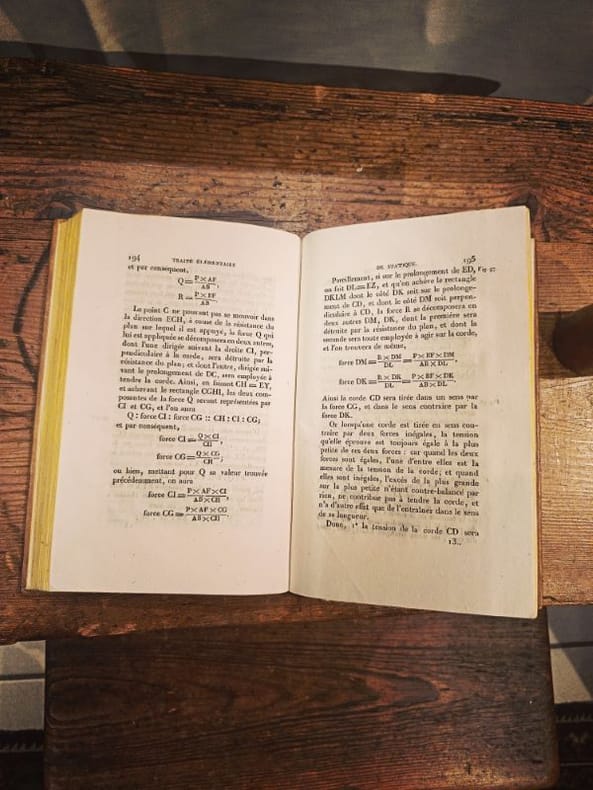 194 TRAITÉ ÉLÉMENTAIRE
et par conséquent,
Q = P × AF / AB,
R = P × BF / AB.
Le point C ne pouvant pas se mouvoir dans
la direction ECH, à cause de la résistance du
plan sur lequel il est appuyé, la force Q qui
lui est appliquée se décomposera en deux autres,
dont l'une dirigée suivant la droite CI, per-
pendiculaire à la corde, sera détruite par la
résistance du plan; et dont l'autre, dirigée sui-
vant le prolongement de DC, sera employée à
tendre la corde. Ainsi, en faisant CH = EY,
et achevant le rectangle CGHI, les deux com-
posantes de la force Q seront représentées par
CI et CG, et l'on aura
Q : force CI : force CG :: CH : CI : CG;
et par conséquent,
force CI = Q × CI / CH,
force CG = Q × CG / CH,
ou bien, mettant pour Q sa valeur trouvée
précédemment, on aura
force CI = P × AF × CI / AB × CH,
force CG = P × AF × CG / AB × CH.
DE STATIQUE. 195
Pareillement, si sur le prolongement de ED, Fig.
on fait DL = EZ, et qu'on achève le rectangle
DKLM dont le côté DK soit sur le prolonge-
ment de CD, et dont le côté DM soit perpen-
diculaire à CD, la force R se décomposera en
deux autres DM, DK, dont la première sera
détruite par la résistance du plan, et dont la
seconde sera toute employée à agir sur la corde,
et l'on trouvera de même,
force DM = R × DM / DL = P × BF × DM / AB × DL,
force DK = R × DK / DL = P × BF × DK / AB × DL.
Ainsi la corde CD sera tirée dans un sens par
la force CG, et dans le sens contraire par la
force DK.
Or lorsqu'une corde est tirée en sens con-
traire par deux forces inégales, la tension
qu'elle éprouve est toujours égale à la plus
petite de ces deux forces : car quand les deux
forces sont égales, l'une d'entre elles est la
mesure de la tension de la corde; et quand
elles sont inégales, l'excès de la plus grande
sur la plus petite n'étant contre-balancé par
rien, ne contribue pas à tendre la corde, et
n'a d'autre effet que de l'entraîner dans le sens
de sa longueur.
Donc, 1° la tension de la corde CD sera
13..